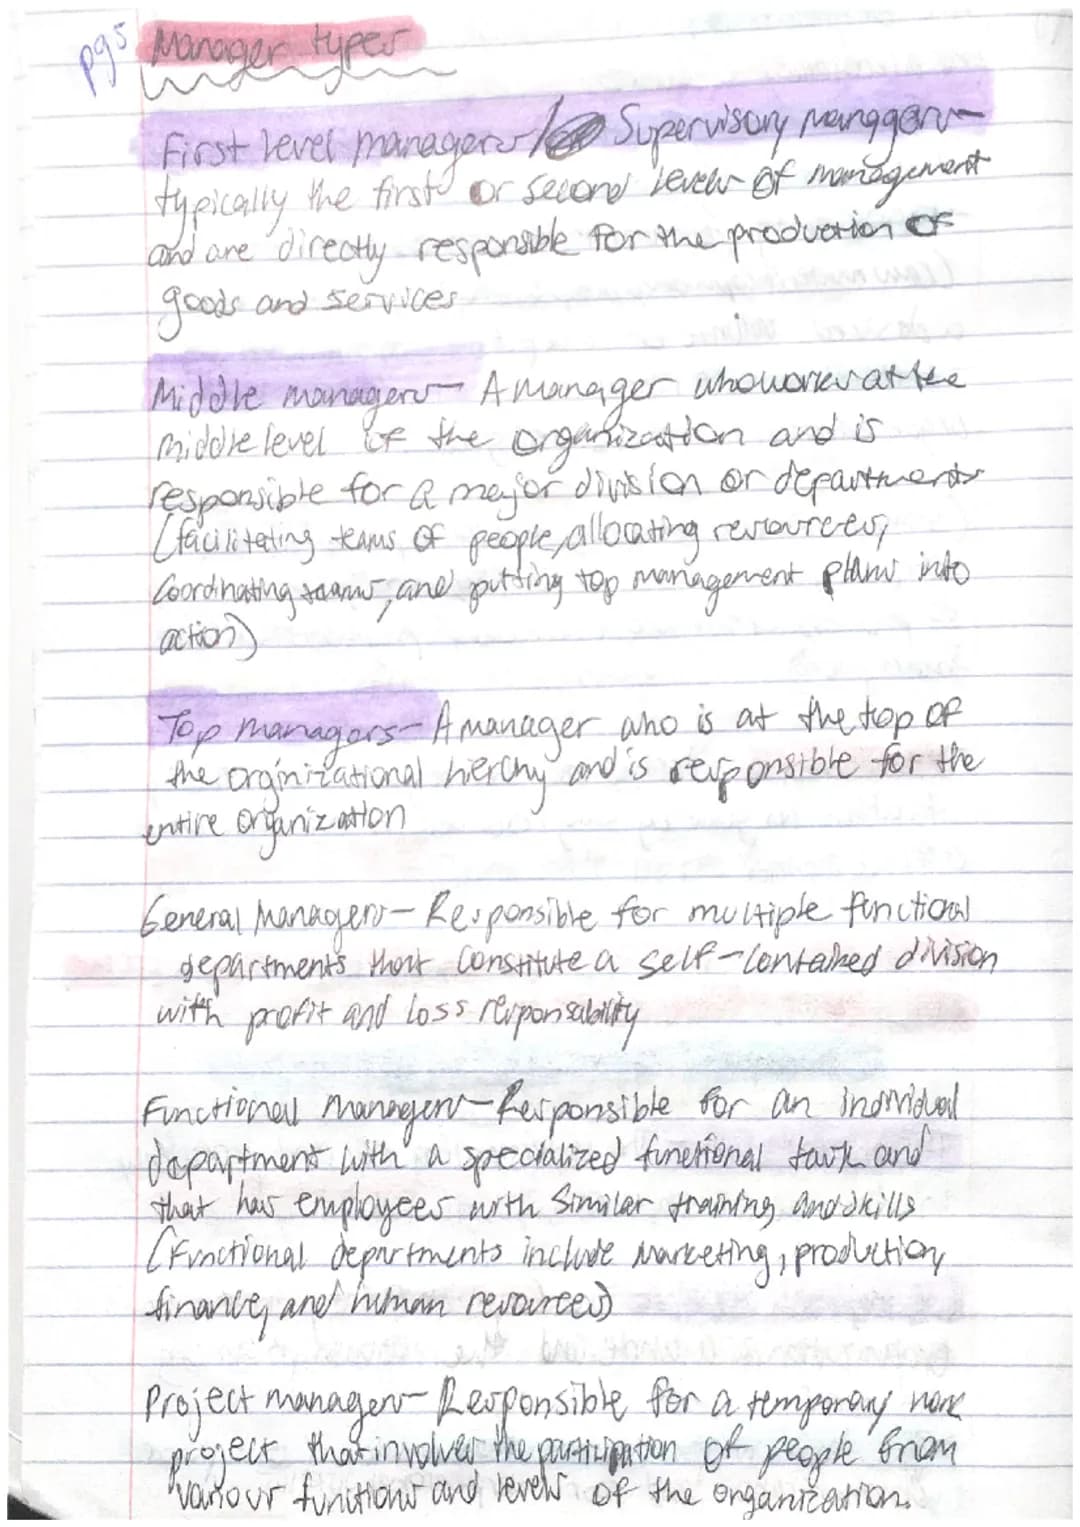 pg5 Manager types
First level managers/ Supervisory managers-
typically the first or second levels of management
and are directly responsible for the production of
goods and services
Middle managers- A manager who works at the
middle level of the organization and is
responsible for a major division or departments
(facilitating teams of people, allocating resources,
Coordinating teams, and putting top management plans into
action)
Top managers- A manager who is at the top of
the orginizational hierchy and is responsible for the
entire organization
General Managers- Responsible for multiple functional
departments that constitute a self-contained division
with profit and loss responsability
Functional Managers- Responsible for an individual
department with a specialized functional task and
that has employees with similar training and skills
(Functional departments include marketing, production,
finance, and human resources)
Project managers- Responsible for a temporary work
project that involves the participation of people from
various functions and levels of the organization.